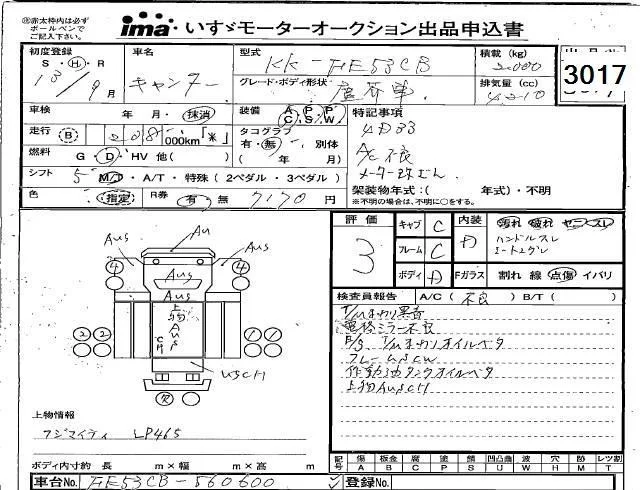 ※赤太枠内は必ず
ボールペンで
ご記入下さい。
ima いすゞモーターオークション出品申込書
初度登録 車名 型式 KK-FE53CB 積載(kg) 2,000
S・H・R 13/9月 キャンター グレード・ボディ形状 排気量(cc) 4210
3017
車検 年・月・抹消 装備 AC・PS・PW 特記事項
走行 B 208 000km「*」 タコグラフ 有・無・別体 4D33
燃料 G・D・HV 他( ) ( 年 月) A/C不良
シフト 5 M/T・A/T・特殊(2ペダル・3ペダル) メーター改ざん
色 指定 R券 有・無 7170円 架装物年式:( 年式)・不明
※不明の場合は、不明に○をする。
評価 3 キャブ C 内装 D 汚れ 破れ ヤニ スレ
フレーム C ハンドルスレ
ボディ D Fガラス 割れ 線 点傷 イバリ
検査員報告 A/C( 不良 )B/T( )
T/Mまわり異音
電格ミラー不良
E/G, T/Mまわりオイルベタ
フレームUSCW
作動油タンクオイルベタ
上物AUSCH
AU
AUS
AUS
4
4
AUS
AUS
上物AUSCH
2 2
1 1
USCH
欠
上物情報
フジマイティ LP465
ボディ内寸約 長 m×幅 m×高 m
記号 傷 板金 腐 塗 錆 凹凸曲 波 穴 跡 レツ割
A B C P S U W H M T
車台No. FE53CB-560600 登録No.